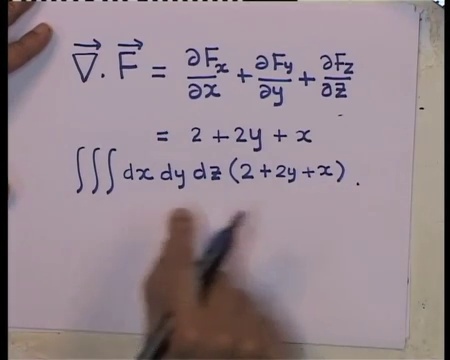 ∇⃗ . F⃗ = ∂Fx/∂x + ∂Fy/∂y + ∂Fz/∂z
= 2 + 2y + x
∭ dx dy dz (2 + 2y + x) .